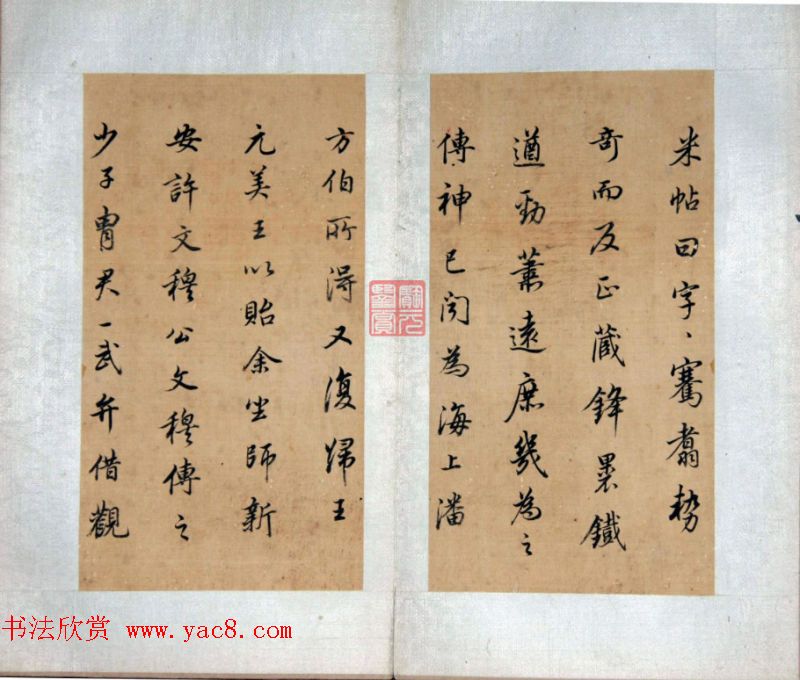 米帖曰字、騫翥勢
奇而反正藏鋒裹鐵
遒勁蕭遠庶幾為之
傳神已聞為海上潘
方伯所得又復歸王
元美王以貽余坐師新
安許文穆公文穆傳之
少子胄君一武弁借觀
书法欣赏 www.yac8.com